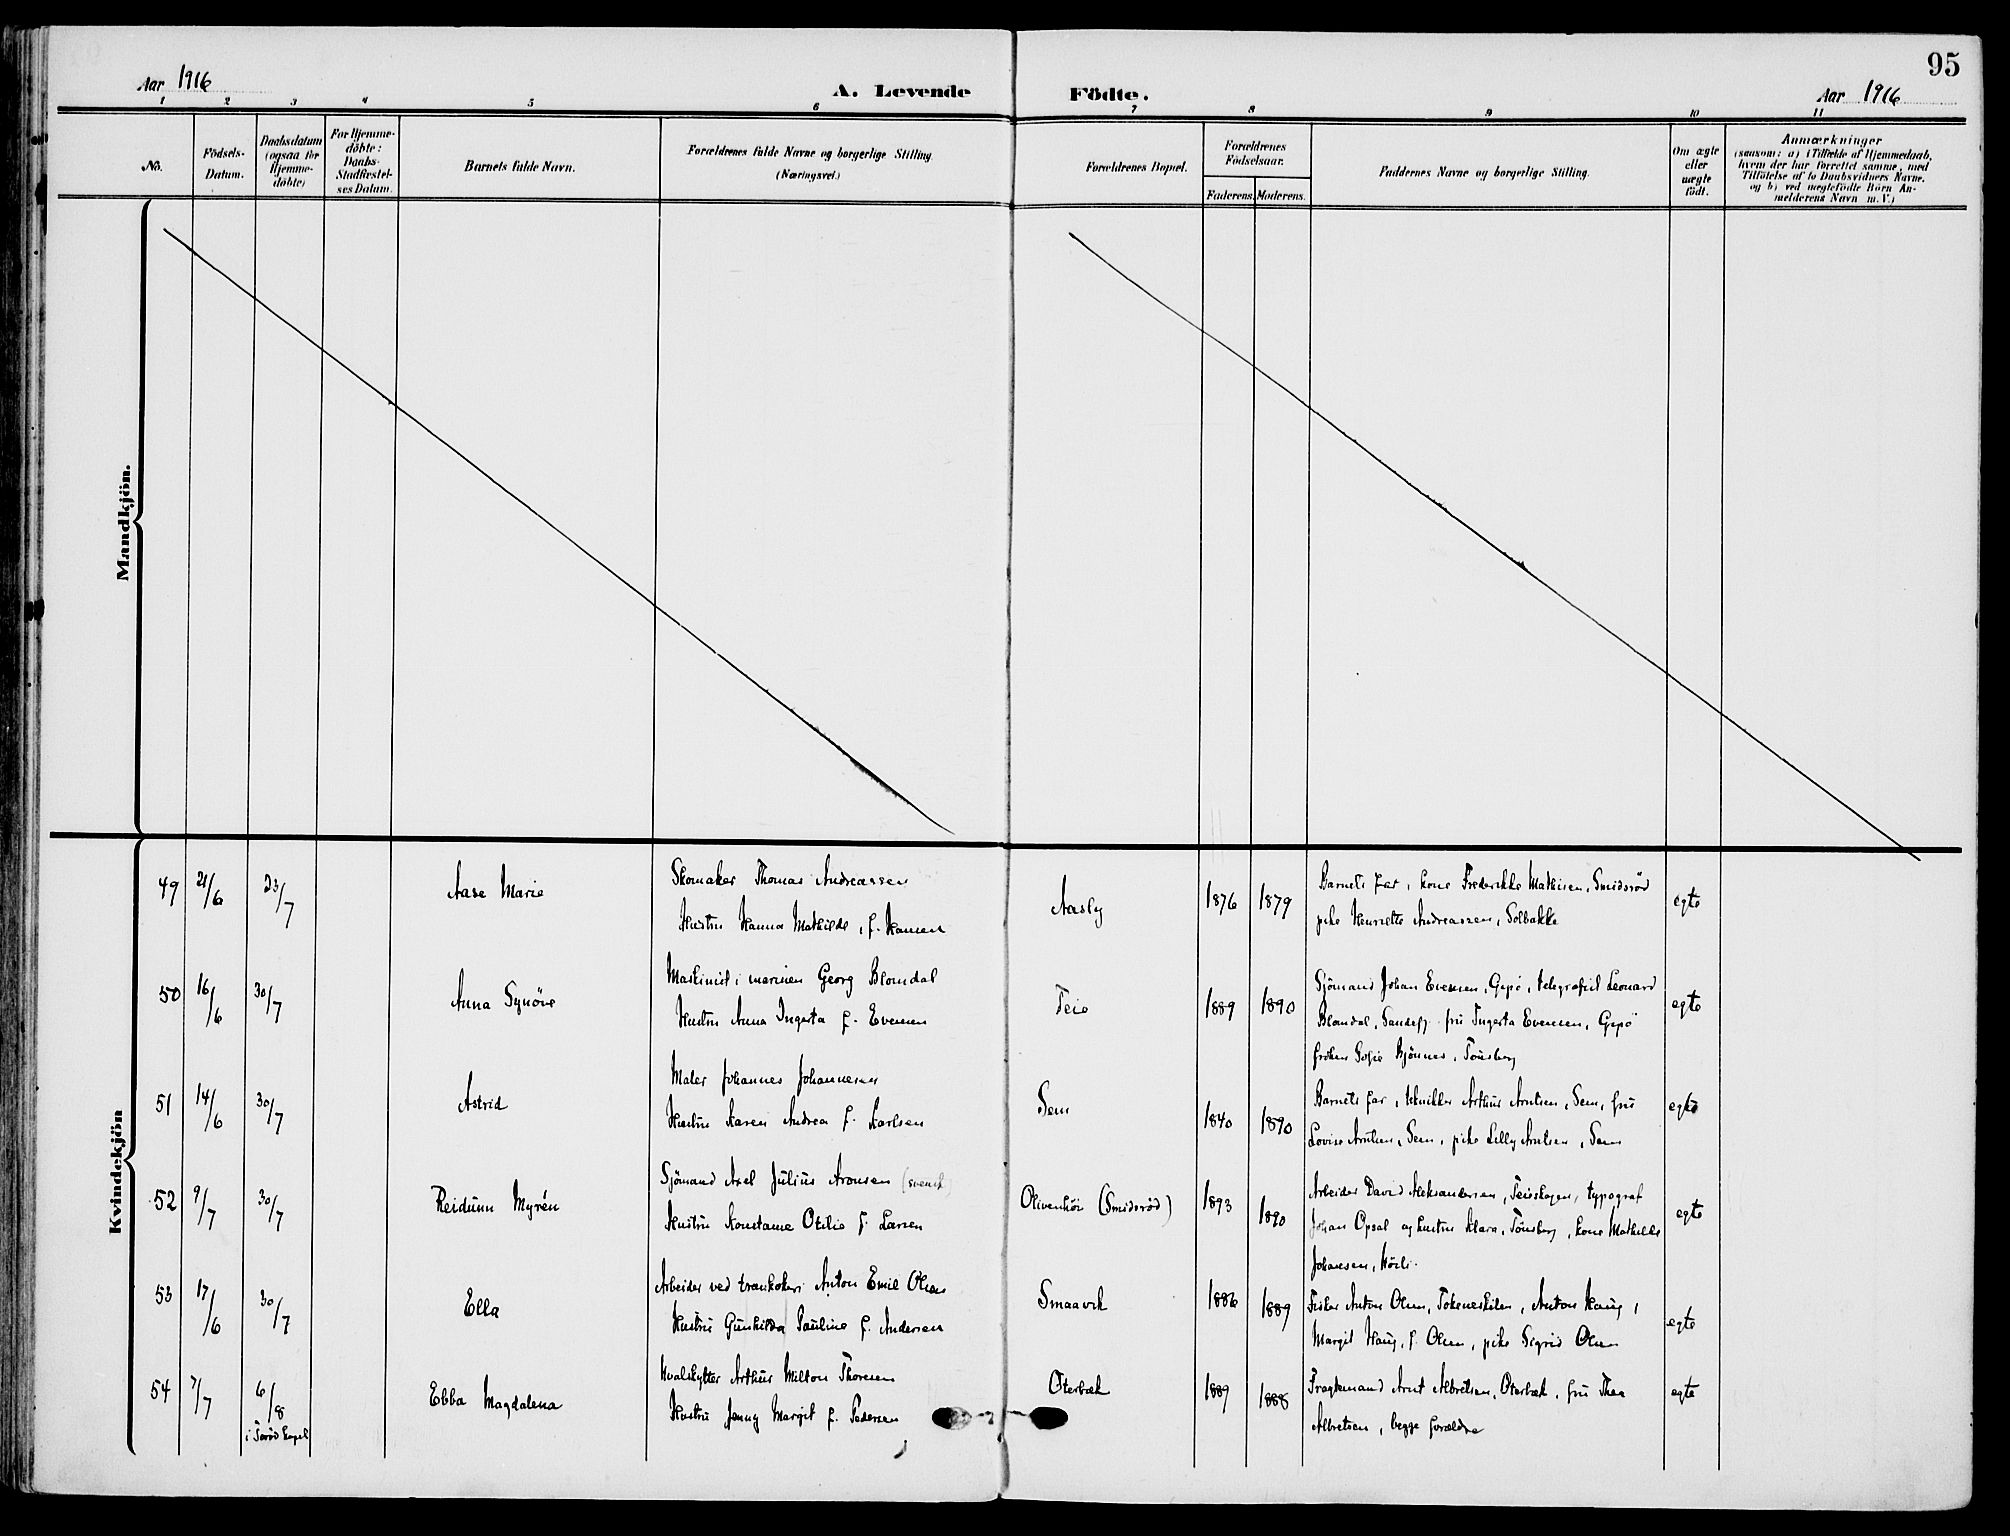 95
Aar 1916
A. Levende Födte.
Aar 1916
1 2 3 4 5 6 7 8 9 10 11
No.
Födsels-Datum.
Daabsdatum (ogsaa for Hjemme-döbte)
For Hjemme-döbte: Daabs-Stadfæstel-ses Datum.
Barnets fulde Navn.
Forældrenes fulde Navne og borgerlige Stilling.
(Næringsvei.)
Forældrenes Bopæl.
Forældrenes Födselsaar.
Faderens. Moderens.
Faddernes Navne og borgerlige Stilling.
Om ægte eller uægte födt.
Anmærkninger
(saasom: a) i Tilfælde af Hjemmedaab,
hvem der har forrettet samme, med
Tilföielse af to Daabsvidners Navne.
og b) ved uægtefödte Börn An-
melderens Navn m. V.)
Mandkjön.
Kvindekjön
49 21/6 23/7 Aase Marie
Skomaker Thomas Andreassen
Hustru Hanna Mathilde, f. Hansen
Aasly 1876 1879
Barnets far, kone Frederikke Mathisen, Smidsröd
pike Henriette Andreassen, Solbakke
egte
50 16/6 30/7 Anna Synöve
Maskinist i marinen Georg Blomdal
Hustru Anna Ingerta f. Evensen
Teie 1889 1890
Sjömand Johan Evensen, Gipö, telegrafist Leonard
Blomdal, Sandefj. fru Ingerta Evensen, Gipö
fröken Sofie Bjönnes, Tönsberg
egte
51 14/6 30/7 Astrid
Maler Johannes Johannesen
Hustru Karen Andrea f. Karlsen
Sem 1840 1890
Barnets far, tekniker Arthur Arntsen, Sem, fru
Lovise Arntsen, Sem, pike Lilly Arntsen, Sem
egte
52 9/7 30/7 Reidunn Myrén
Sjömand Axel Julius Aronsen (svensk)
Hustru Konstanse Otilie f. Larsen
Olivenhöi (Smidsröd) 1893 1890
Arbeider David Aleksandersen, Teieskogen, typograf
Johan Opsal og hustru Klara, Tönsberg, kone Mathilde
Johansen,
egte
53 17/6 30/7 Ella
Arbeider ved trankokeri Anton Emil Olsen
Hustru Gunhilda Pauline f. Andersen
Smaavik 1886 1889
Fisker Anton Olsen, Tokeneskilen, Anton Haug,
Margit Haug, f. Olsen, pike Sigrid Olsen
egte
54 7/7 6/8 i Teröd kapel Ebba Magdalena
Hvalskytter Arthur Milton Thoresen
Hustru Jenny Margit f. Pedersen
Oterbæk 1889 1888
Fragtemand Arnt Albretsen, Oterbæk, fru Thea
Albretsen, begge forældre
egte